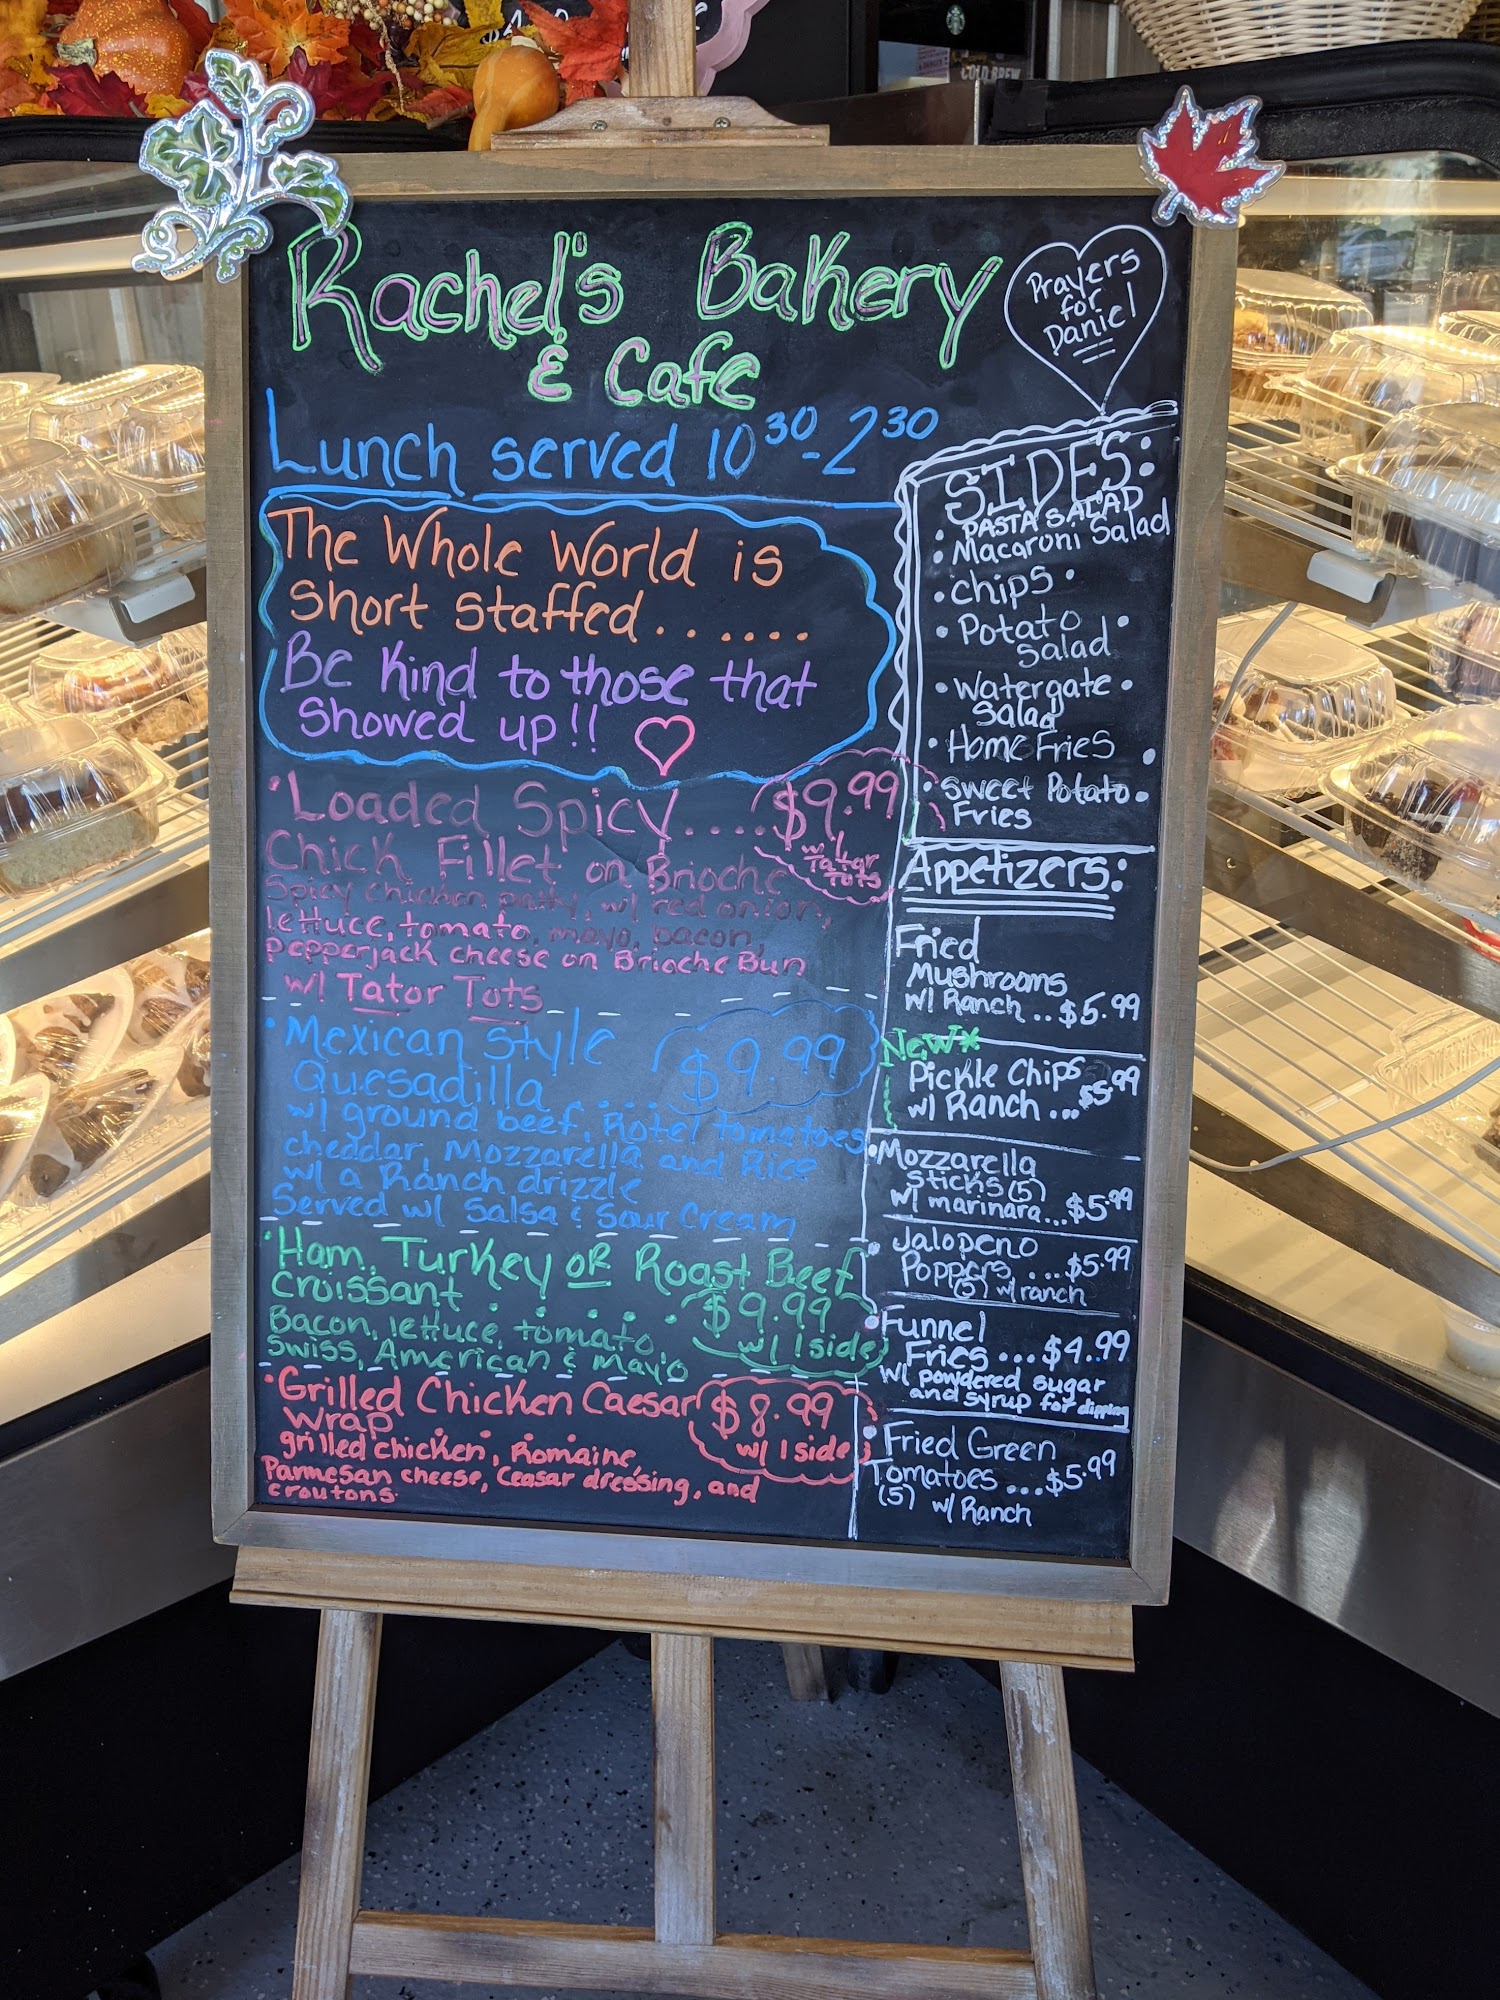 COLD BREW
Rachel's Bakery
& Cafe
Prayers
for
Daniel
Lunch served 10³⁰-2³⁰
The Whole World is
Short Staffed.......
Be Kind to those that
Showed up!!
• Loaded Spicy....$9.99
w/ Tatar
Tots
Chick Fillet on Brioche
Spicy chicken patty, w/ red onion,
lettuce, tomato, mayo, bacon,
pepperjack cheese on Brioche Bun
w/ Tator Tots
• Mexican Style $9.99
Quesadilla....
w/ ground beef, Rotel tomatoes
cheddar, Mozzarella and Rice
w/ a Ranch drizzle
Served w/ Salsa & Sour Cream
• Ham, Turkey OR Roast Beef
Croissant ...... $9.99
w/ 1 side
Bacon, lettuce, tomato
Swiss, American & Mayo
• Grilled Chicken Caesar $8.99
w/ 1 side
Wrap....
grilled chicken, Romaine,
Parmesan cheese, Ceasar dressing, and
croutons
SIDES:
• PASTA SALAD
• Macaroni Salad
• Chips •
• Potato •
Salad
• Watergate •
Salad
• Home Fries •
• Sweet Potato •
Fries
Appetizers:
Fried
Mushrooms
w/ Ranch ..$5.99
New*
Pickle Chips
w/ Ranch ...$5.99
• Mozzarella
Sticks (5)
w/ marinara...$5.99
• Jalopeno
Poppers ...$5.99
(5) w/ ranch
• Funnel
Fries ...$4.99
w/ powdered sugar
and syrup for dipping
• Fried Green
Tomatoes ...$5.99
(5) w/ Ranch